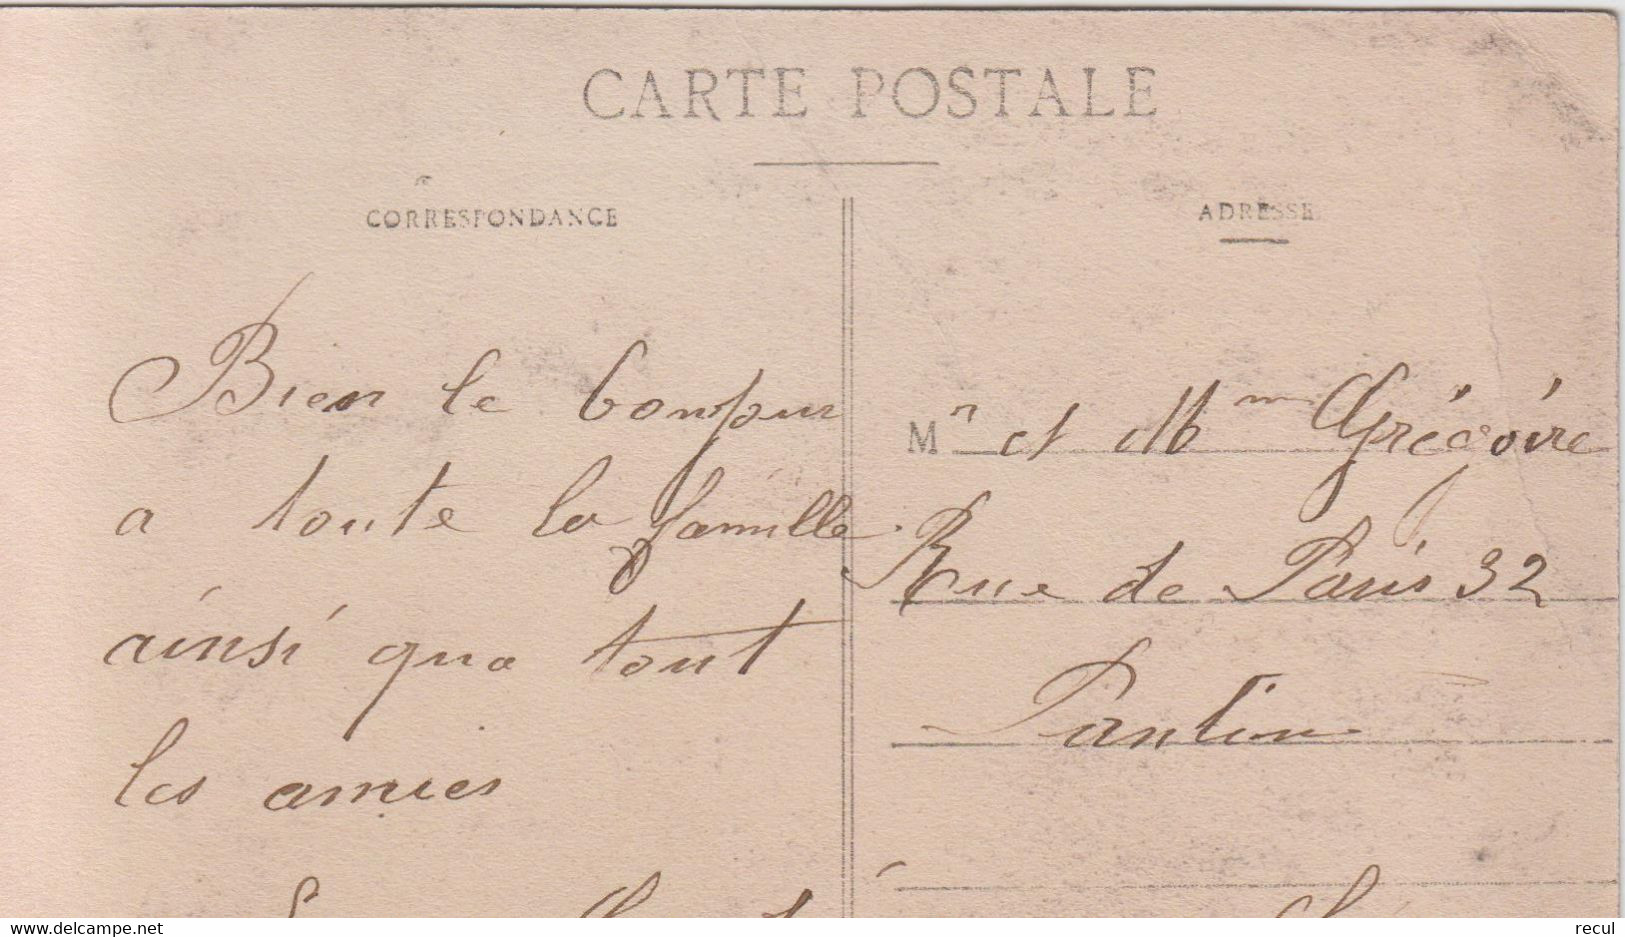 CARTE POSTALE
CORRESPONDANCE
ADRESSE
Bien le bonjour
a toute la famille
ainsi que tout
les amies
Mr et Mme Grégoire
Rue de Paris 32
Pantin
delcampe.net
recul